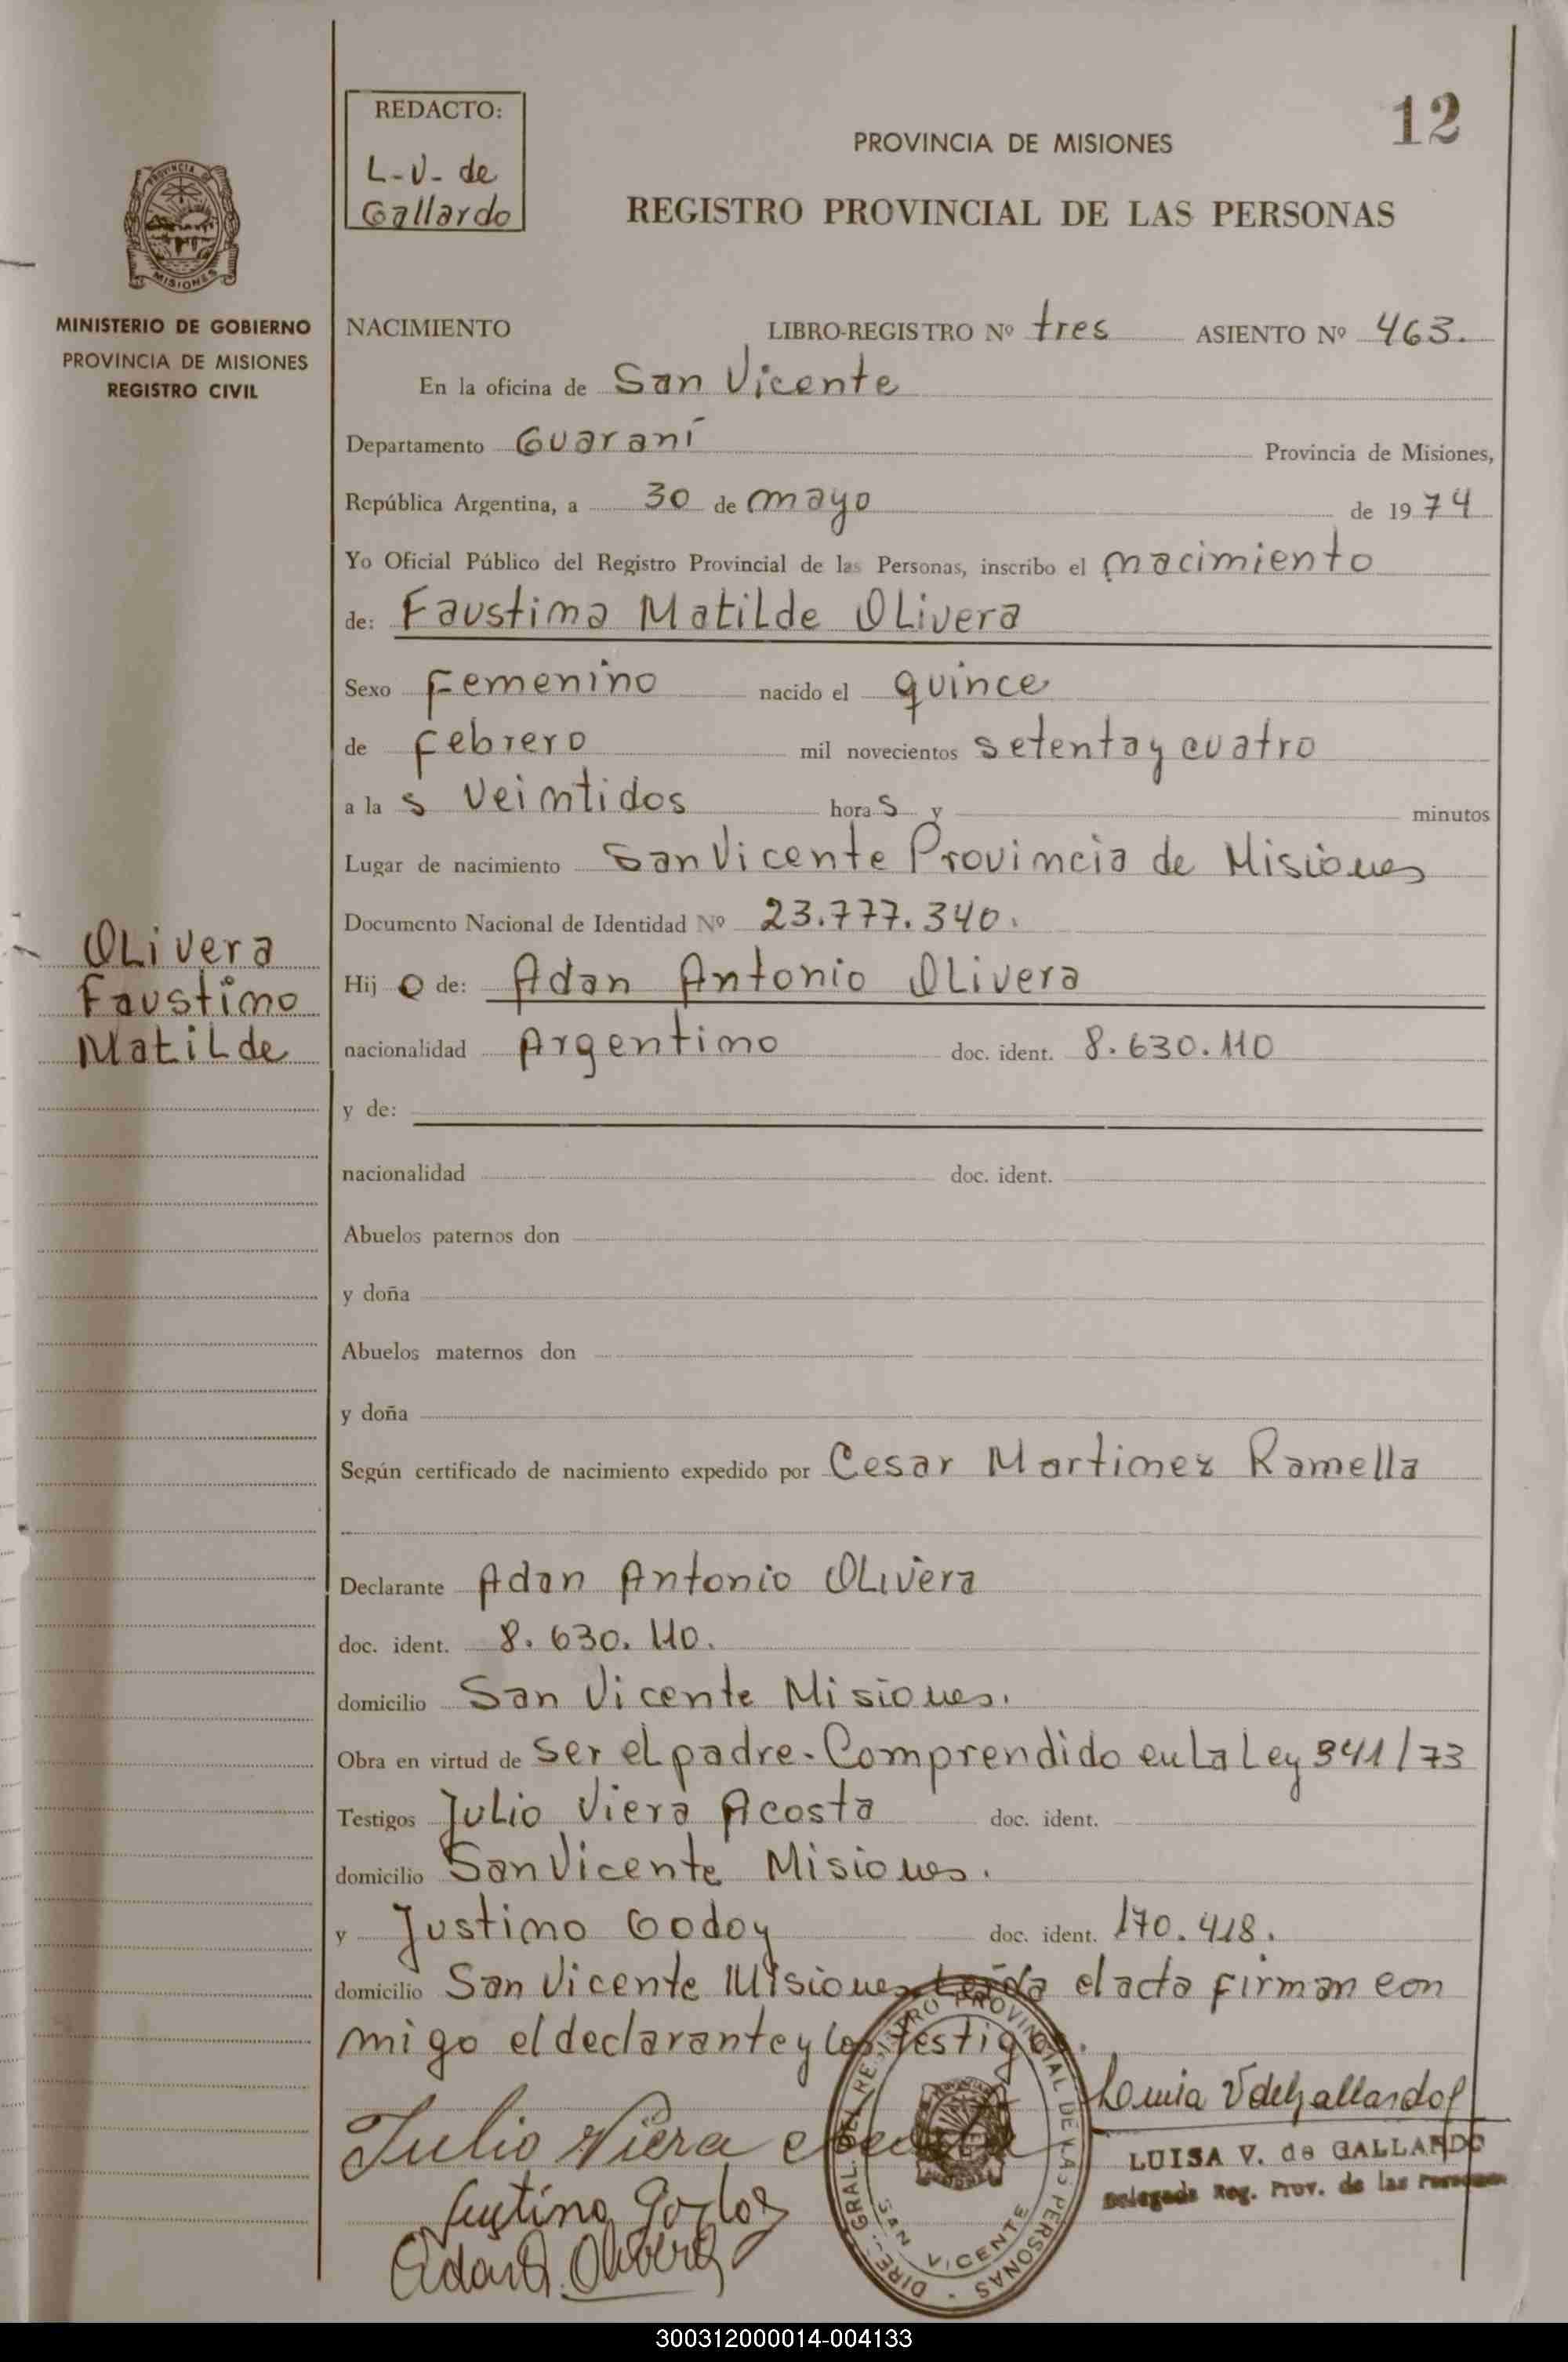 12
REDACTO:
L-V- de
Gallardo
PROVINCIA DE MISIONES
REGISTRO PROVINCIAL DE LAS PERSONAS
PROVINCIA DE
MISIONES
MINISTERIO DE GOBIERNO
PROVINCIA DE MISIONES
REGISTRO CIVIL
NACIMIENTO LIBRO-REGISTRO Nº tres ASIENTO Nº 463.
En la oficina de San Vicente
Departamento Guaraní Provincia de Misiones,
República Argentina, a 30 de mayo de 1974
Yo Oficial Público del Registro Provincial de las Personas, inscribo el nacimiento
de: Faustina Matilde Olivera
Sexo Femenino nacido el quince
de febrero mil novecientos setenta y cuatro
a la s veintidos hora s y minutos
Lugar de nacimiento San Vicente Provincia de Misiones
Documento Nacional de Identidad Nº 23.777.340.
Olivera
Faustino
Matilde
Hij o de: Adan Antonio Olivera
nacionalidad Argentino doc. ident. 8.630.110
y de:
nacionalidad doc. ident.
Abuelos paternos don
y doña
Abuelos maternos don
y doña
Según certificado de nacimiento expedido por Cesar Martinez Ramella
Declarante Adan Antonio Olivera
doc. ident. 8.630.110.
domicilio San Vicente Misiones.
Obra en virtud de ser el padre. Comprendido en la Ley 941/73
Testigos Julio Viera Acosta doc. ident.
domicilio San Vicente Misiones.
y Justino Godoy doc. ident. 170.418.
domicilio San Vicente Misiones Leída el acta firman con
migo el declarante y los testigos.
Julio Viera
Justino Godoy
Adan A. Olivera
DIREC. GRAL. DEL REGISTRO PROVINCIAL DE LAS PERSONAS
SAN VICENTE
Luisa V de Gallardo
LUISA V. de GALLARDO
Delegada Reg. Prov. de las Personas
300312000014-004133